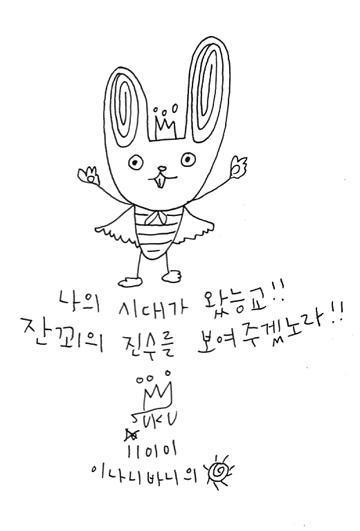 나의 시대가 왔능교!!
잔꾀의 진수를 보여주겠노라!!
SUKU
11010
이나니바니의